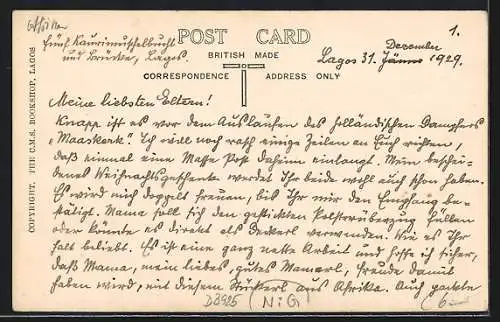 1.
Fünf Kaurimuschelbucht
und Brücke, Lagos.
POST CARD
BRITISH MADE
CORRESPONDENCE
ADDRESS ONLY
Dezember
Lagos 31. Jänner 1929.
COPYRIGHT. THE C.M.S. BOOKSHOP, LAGOS
Meine liebsten Eltern!
Knapp ist es vor dem Auslaufen des holländischen Dampfers
"Maaskerk". Ich will noch rasch einige Zeilen an Euch richten,
daß einmal eine Masse Post daheim einlangt. Mein beschei-
denes Weihnachtsgeschenk werdet Ihr beide wohl auch schon haben.
Es wird mich doppelt freuen, bis Ihr mir den Empfang be-
stätigt. Mama soll sich den gestickten Polsterüberzug füllen
oder könnte es direkt als Deckerl verwenden. Wie es Ihr
halt beliebt. Es ist eine ganz nette Arbeit und hoffe ich sicher,
daß Mama, mein liebes, gutes Mamerl, Freude damit
haben wird, mit diesem Stückerl aus Afrika. Auch
D3925 (NiG)